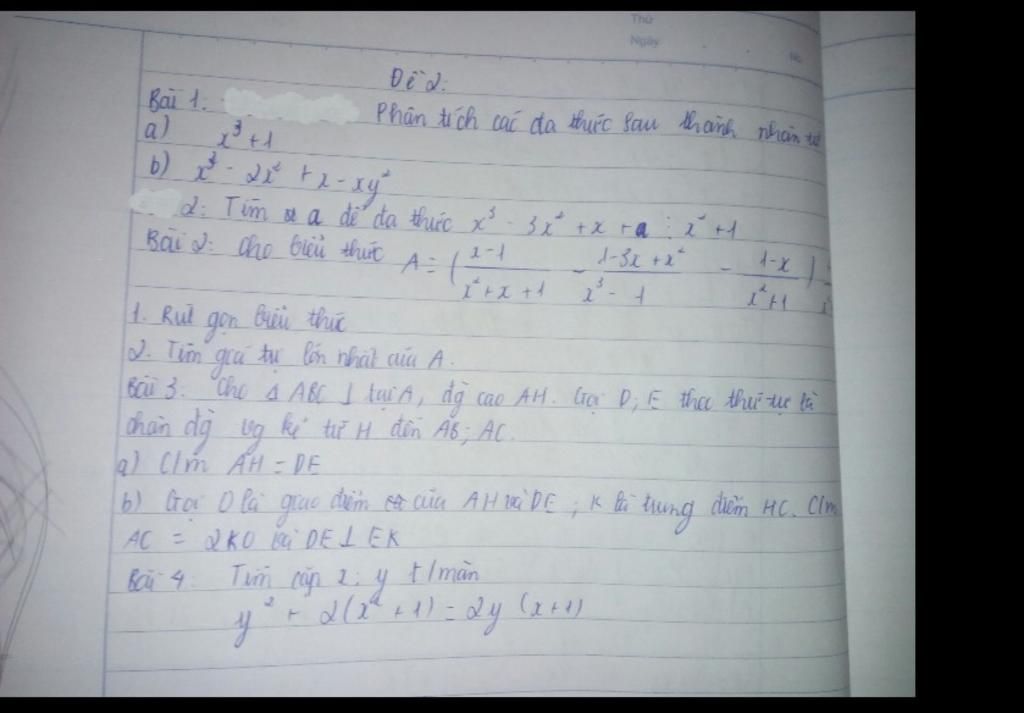 Thứ
Ngày
No
Đề 2:
Bài 1: Phân tích các đa thức sau thành nhân tử
a) x³ + 1
b) x³ - 2x² + x - xy²
2: Tìm a để đa thức x³ - 3x² + x + a ⋮ x² + 1
Bài 2: Cho biểu thức A = ( (x-1)/(x²+x+1) - (1-3x+x²)/(x³-1) - (1-x)/(x²+1) )
1. Rút gọn biểu thức
2. Tìm giá trị lớn nhất của A.
Bài 3: Cho Δ ABC ⊥ tại A, đg cao AH. Gọi D; E theo thứ tự là
chân đg vg kẻ từ H đến AB; AC.
a) C/m AH = DE
b) Gọi O là giao điểm của AH và DE; K là trung điểm HC. C/m
AC = 2KO và DE ⊥ EK
Bài 4: Tìm cặp x; y t/mãn
y² + 2(x² + 1) = 2y (x+1)